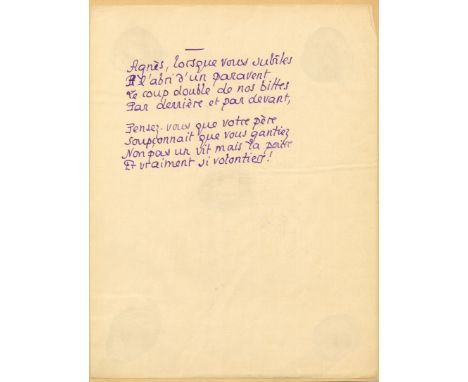 Agnès, lorsque vous subîtes
A l'abri d'un paravent
Le coup double de nos bittes
Par derrière et par devant,
Pensez-vous que votre père
Soupçonnait que vous gantiez
Non pas un vit mais la paire
Et vraiment si volontiers!